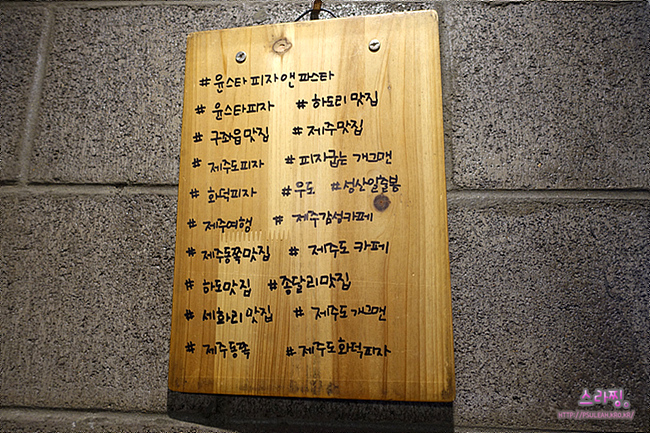 #윤스타피자앤파스타
#윤스타피자 #하도리맛집
#구좌읍맛집 #제주맛집
#제주도피자 #피자굽는개그맨
#화덕피자 #우도 #성산일출봉
#제주여행 #제주감성카페
#제주동쪽맛집 #제주도카페
#하도맛집 #종달리맛집
#세화리맛집 #제주도개그맨
#제주동쪽 #제주도화덕피자
스리찡。
HTTP://PSULEAH.KRO.KR/